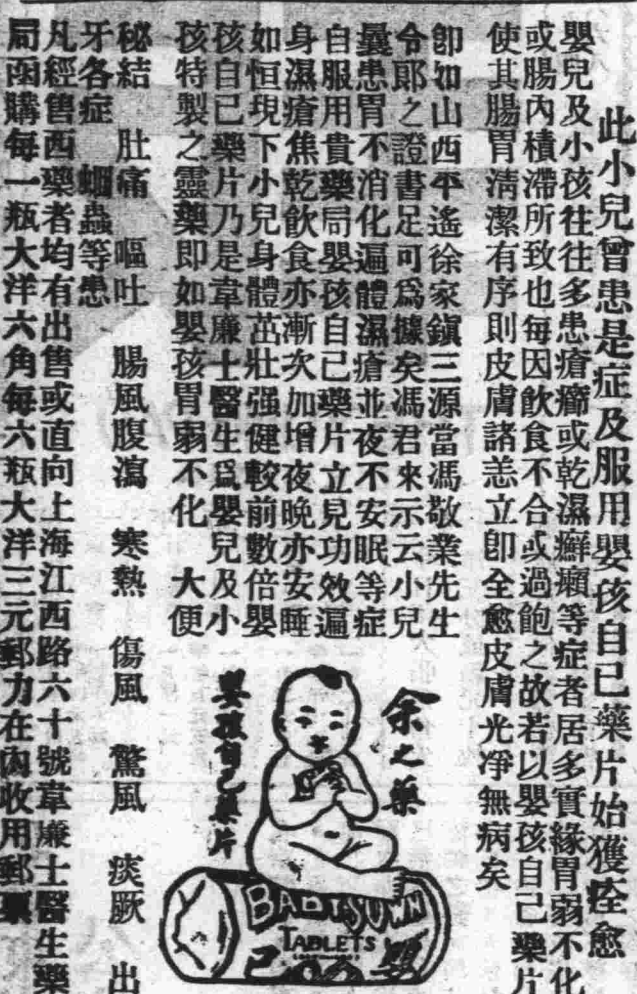 此小兒曾患是症及服用嬰孩自己藥片始獲痊愈
嬰兒及小孩往往多患瘡癤或乾濕癬癩等症者居多實緣胃弱不化
或腸內積滯所致也每因飲食不合或過飽之故若以嬰孩自己藥片
使其腸胃清潔有序則皮膚諸恙立卽全愈皮膚光淨無病矣
卽如山西平遙徐家鎮三源當馮敬業先生
令郎之證書足可爲據矣馮君來示云小兒
曩患胃不消化遍體濕瘡並夜不安眠等症
自服用貴藥局嬰孩自己藥片立見功效遍
身濕瘡焦乾飲食亦漸次加增夜晚亦安睡
如恒現下小兒身體茁壯强健較前數倍嬰
孩自己藥片乃是韋廉士醫生爲嬰兒及小
孩特製之靈藥即如嬰孩胃弱不化 大便
秘結 肚痛 嘔吐 腸風腹瀉 寒熱 傷風 驚風 痰厥 出
牙各症 蛔蟲等患
凡經售西藥者均有出售或直向上海江西路六十號韋廉士醫生藥
局函購每一瓶大洋六角每六瓶大洋三元郵力在內收用郵票
余之藥
嬰孩自己藥片
BABY'S OWN
TABLETS
己 嬰